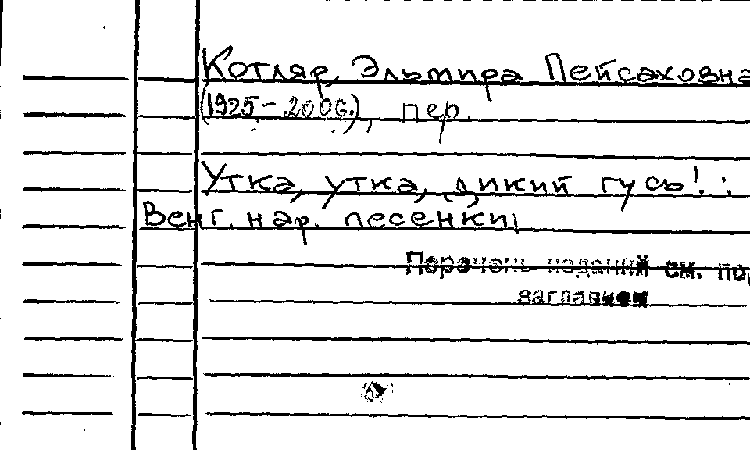 Котляр, Эльмира Пейсаховна
(1925-2006.), пер.
Утка, утка, дикий гусь! :
Венг. нар. песенки
Перечень изданий см. под
заглавием